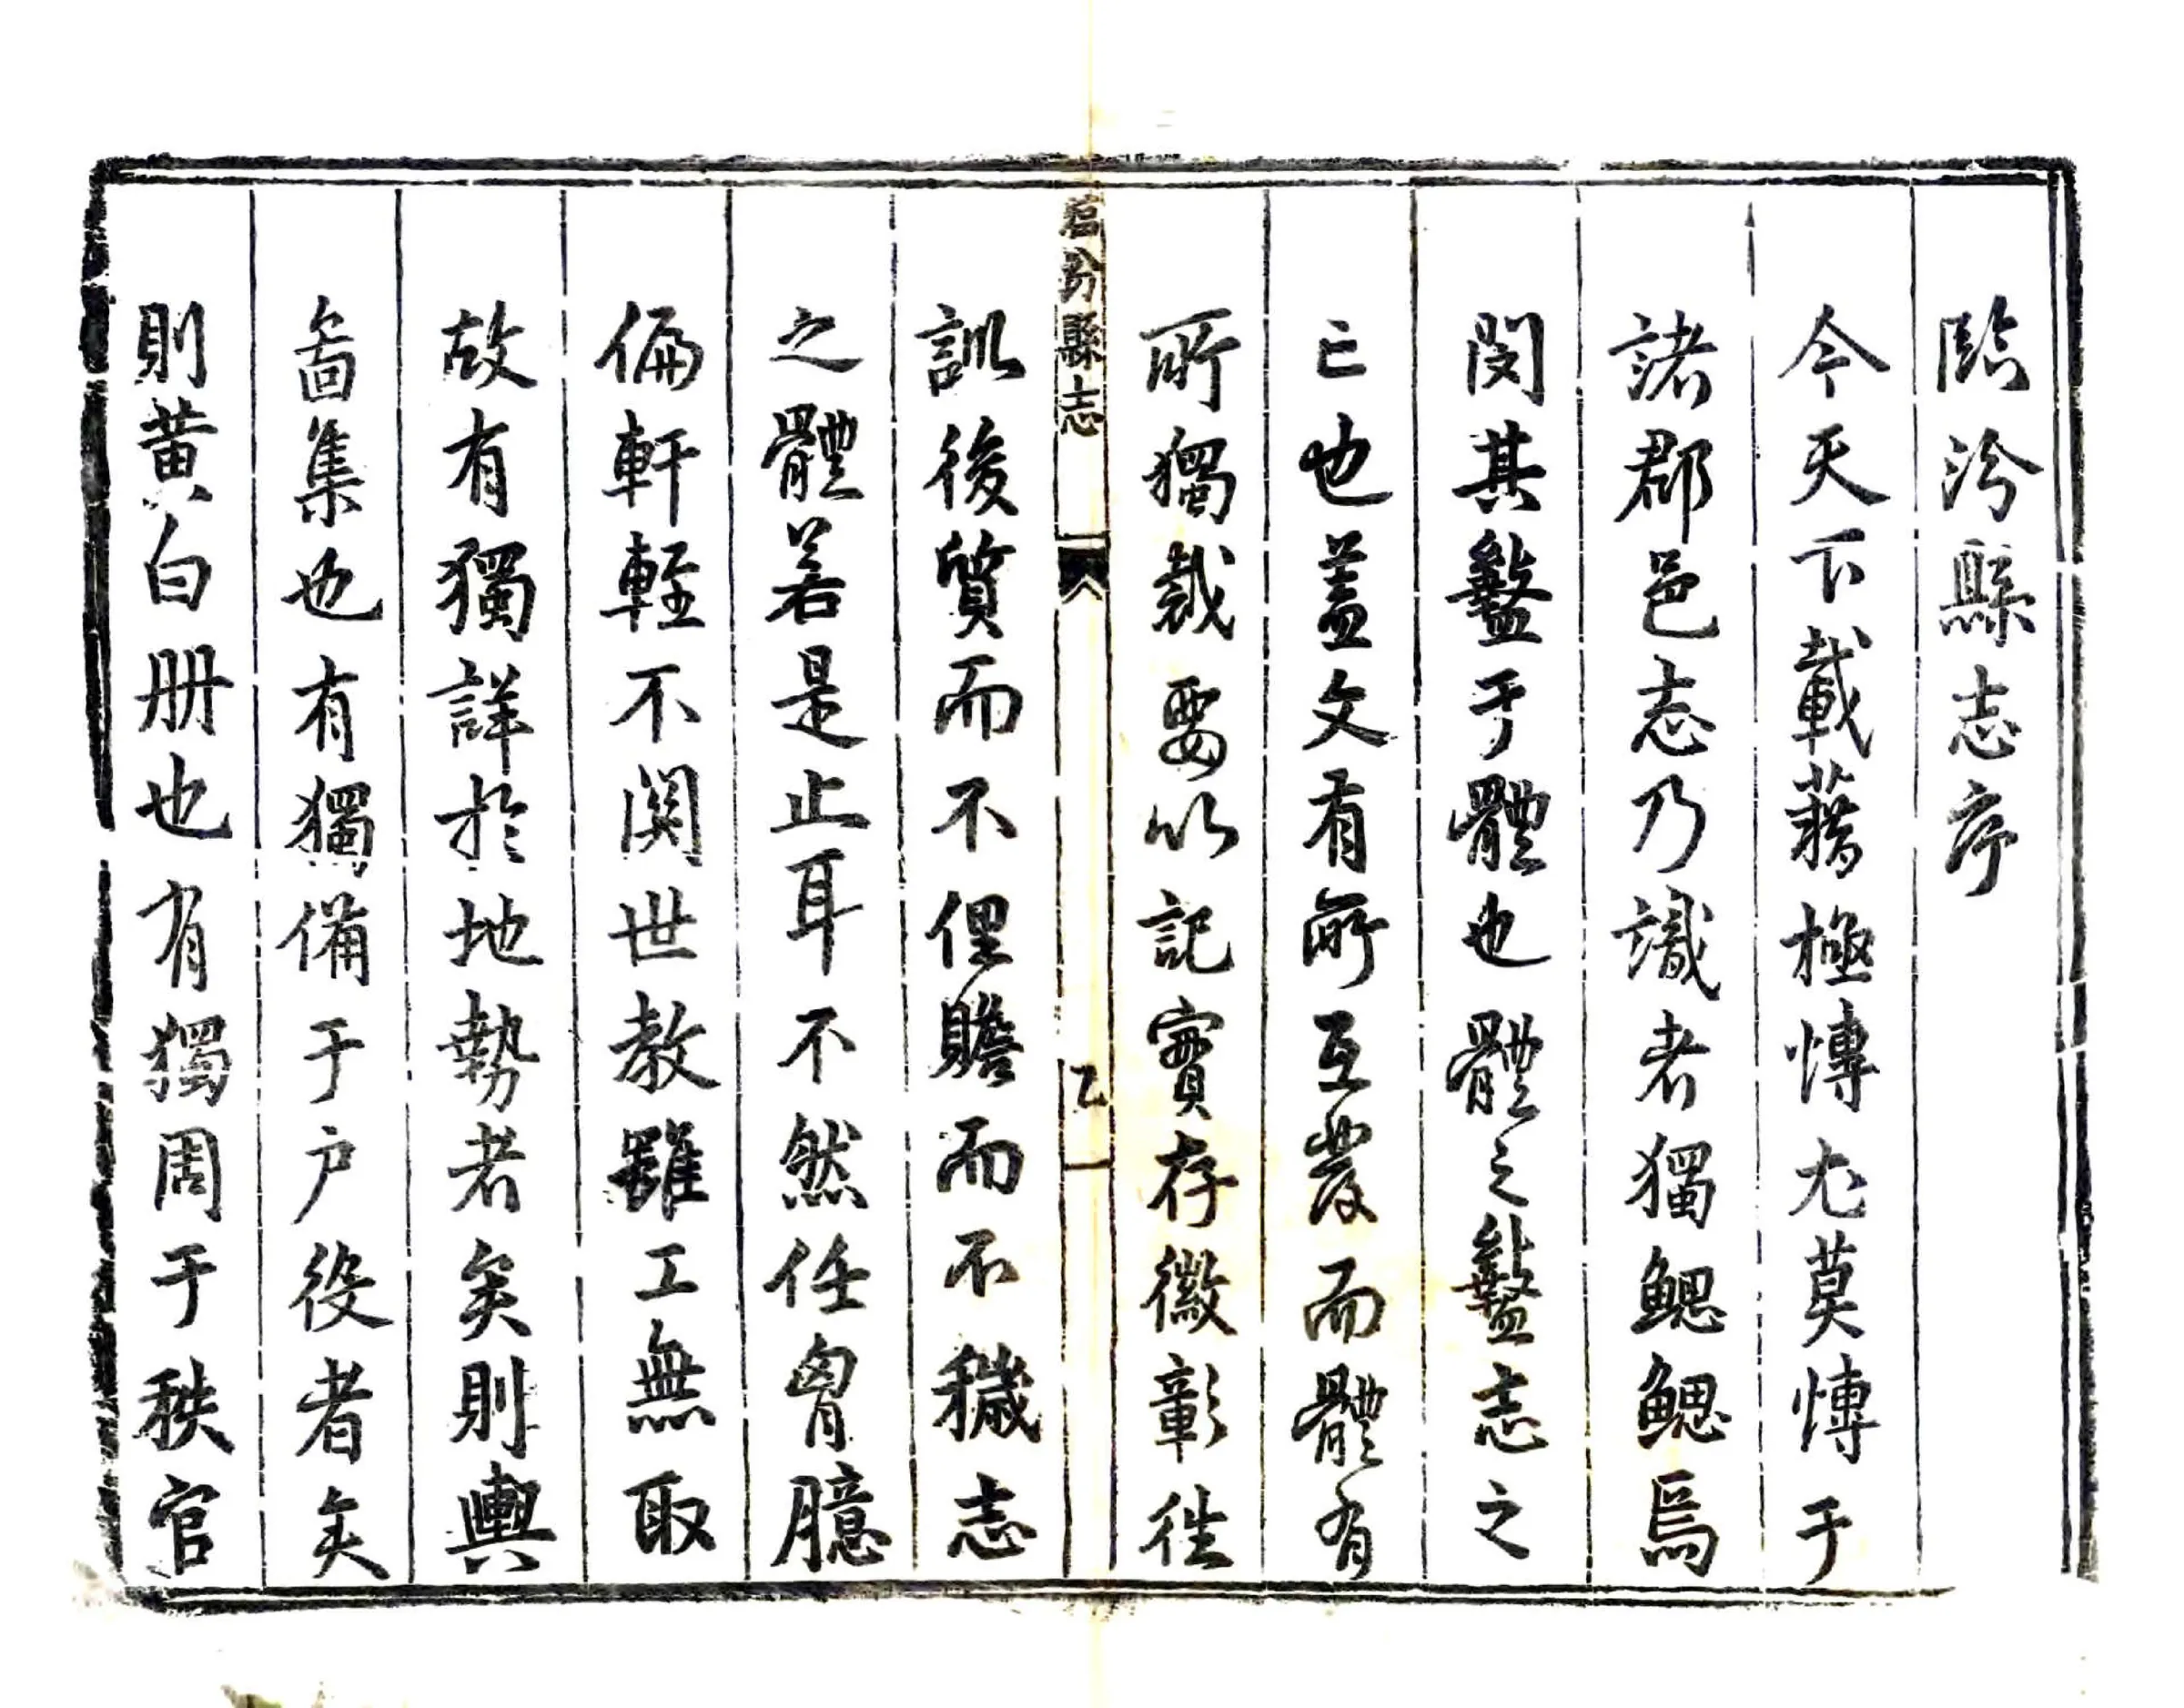 臨汾縣志序
今天下載藉極愽尤莫愽于
諸郡邑志乃識者獨鰓鰓焉
閔其盭于體也體之盭志之
亡也蓋文有所互發而體有
所獨裁要以記實存徽彰徃
訓後質而不俚贍而不穢志
之體若是止耳不然任胷臆
偏軒輊不関世教雖工無取
故有獨詳於地勢者矣則輿
啚集也有獨備于户役者矣
則黄白册也有獨周于秩官
臨汾縣志
乙